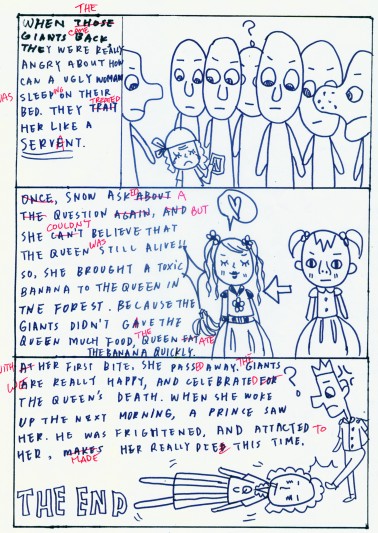 THE
WHEN THOSE
GIANTS CAME BACK
THEY WERE REALLY
ANGRY ABOUT HOW
CAN A UGLY WOMAN
WAS SLEEPING ON THEIR
BED. THEY TRAIT TREATED
HER LIKE A
SERVANT.
?
ONCE, SNOW ASKED ABOUT A
THE QUESTION AGAIN, AND BUT
SHE CAN'T COULDN'T BELIEVE THAT
THE QUEEN WAS STILL ALIVE!!
SO, SHE BROUGHT A TOXIC
BANANA TO THE QUEEN IN
THE FOREST. BECAUSE THE
GIANTS DIDN'T GAVE THE
QUEEN MUCH FOOD, THE QUEEN EAT ATE
THE BANANA QUICKLY.
WITH AT HER FIRST BITE, SHE PASSED AWAY. THE GIANTS
WERE REALLY HAPPY, AND CELEBRATED FOR
THE QUEEN'S DEATH. WHEN SHE WOKE
UP THE NEXT MORNING, A PRINCE SAW
HER. HE WAS FRIGHTENED, AND ATTACTED TO
HER, MAKES MADE HER REALLY DIED THIS TIME.
?
THE END